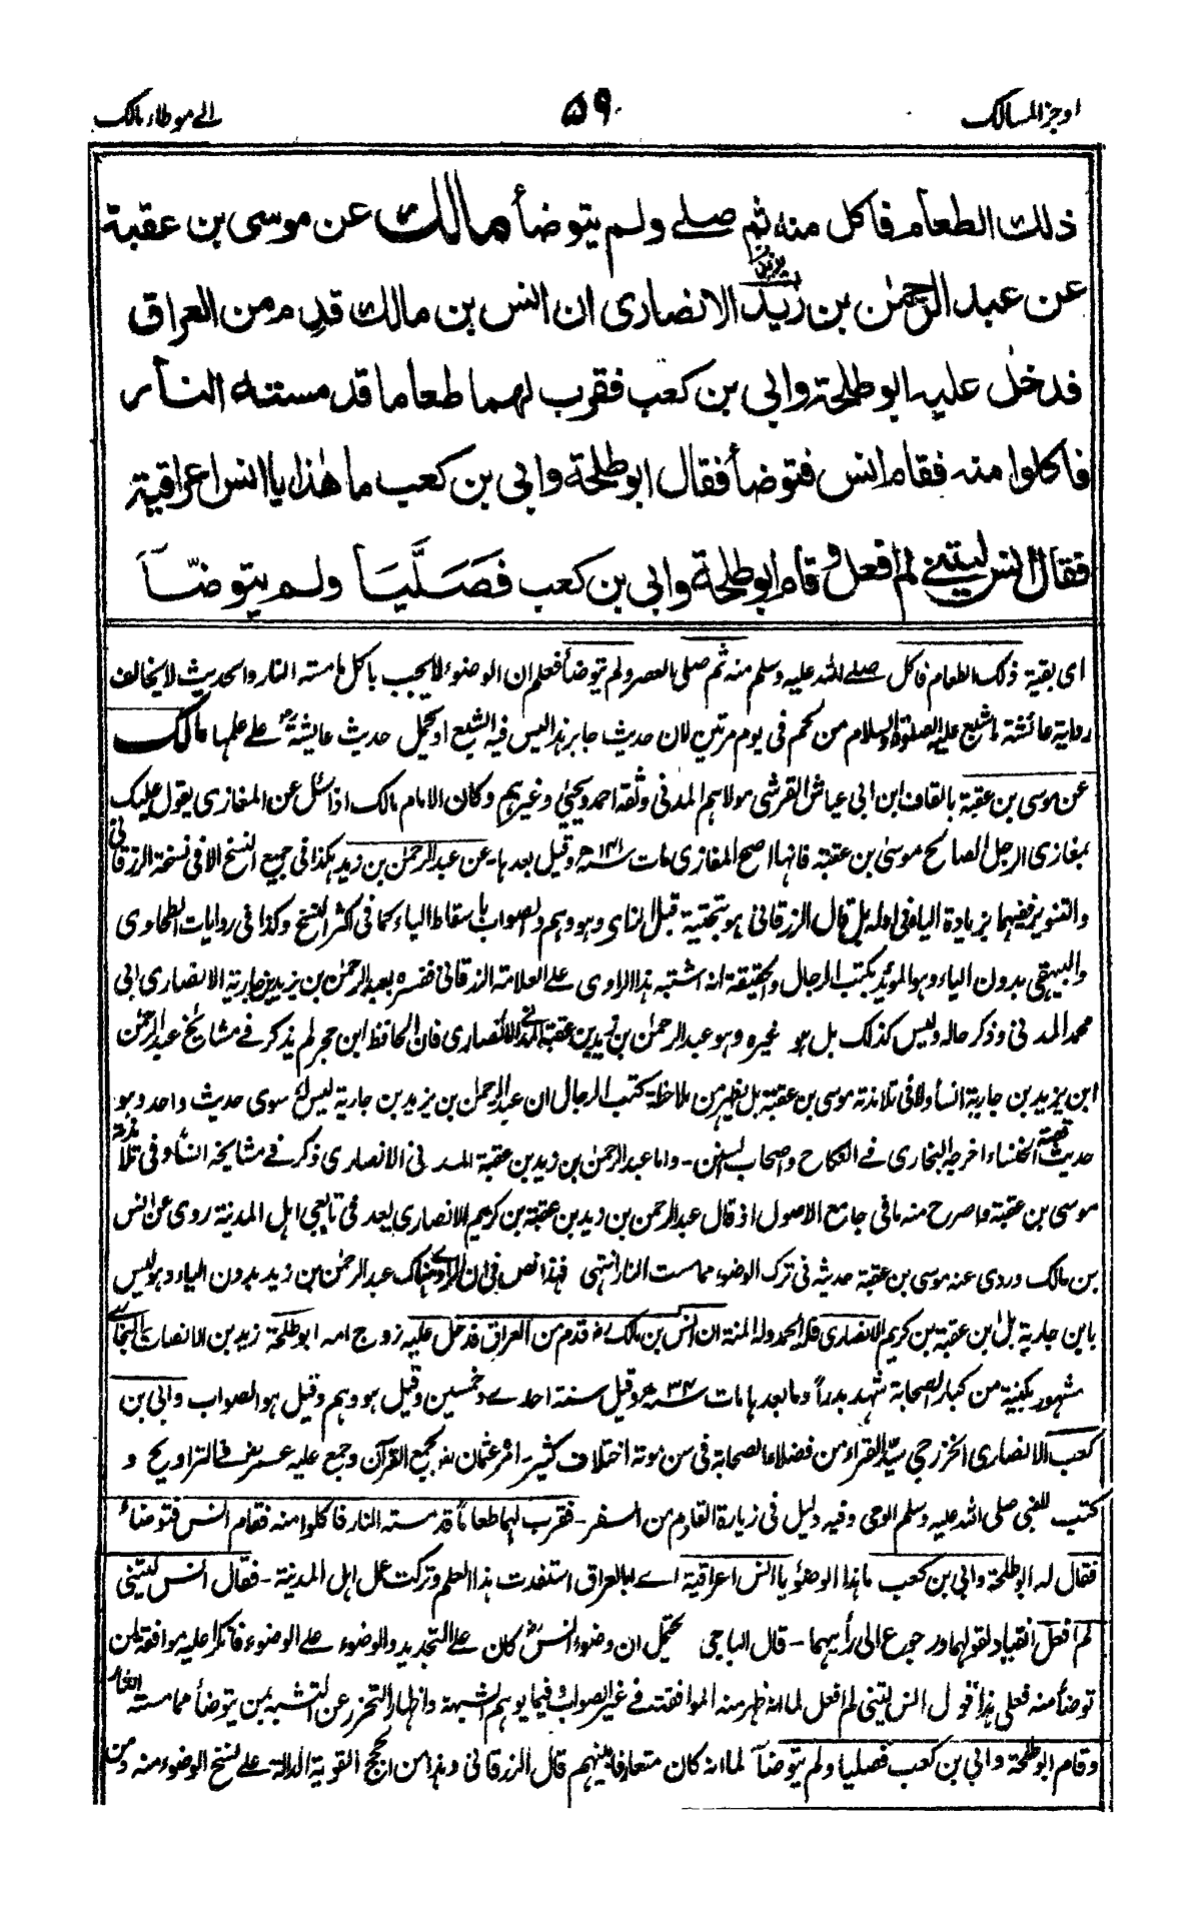 اوجز المسالک
۵۹
الے موطاء مالک
ذلك الطعام فاكل منه ثم صلے ولم يتوضأ مالك عن موسى بن عقبة
عن عبد الرحمٰن بن زيد الانصارى ان انس بن مالك قدم من العراق
يزيد
فدخل عليه ابو طلحة وابي بن كعب فقرب لهما طعاما قد مسته النار
فاكلوا منه فقام انس فتوضأ فقال ابو طلحة وابي بن كعب ما هٰذا يا انس اعراقية
فقال انس ليتني لم افعل و قام ابو طلحة وابي بن كعب فَصَلَّيَا ولم يتوضّآ
اى بقية ذلك الطعام فاكل صلے الله عليه وسلم منه ثم صلى بالعصر ولم يتوضأ فعلم ان الوضوء لا يجب باكل ما مسته النار والحديث لا يخالف
رواية عائشة ما شبع عليه الصلوة والسلام من لحم فى يوم مرتين لان حديث جابر هذا ليس فيه الشبع او يحمل حديث عايشة رض علے علمها مالك
عن موسى بن عقبة بالقاف ابن ابى عياش القرشى مولاهم المدنى وثقه احمد ويحيىٰ وغيرهم وكان الامام مالك اذا سئل عن المغازى يقول عليك
بمغازى الرجل الصالح موسىٰ بن عقبة فانها اصح المغازى مات سنه ۱۴۱ھ وقيل بعدها - عن عبد الرحمٰن بن زيد هكذا فى جميع النسخ الا فى نسخة الزرقانى
والتنوير ففيهما بزيادة الياء فى اوله بل قال الزرقانى هو بتحتية قبل الزاى وهو وهم والصواب باسقاط الياء كما فى اكثر النسخ وكذا فى روايات الطحاوى
والبيهقى بدون الياء وهو المؤيد بكتب الرجال والحقيقة انه اشتبه هذا الراوى علے العلامة الزرقانى ففسره بعبد الرحمٰن بن يزيد بن جارية الانصارى ابى
محمد المدنى وذكر حاله وليس كذلك بل هو غيره وهو عبد الرحمٰن بن زيد بن عقبة المدنى الانصارى فان الحافظ ابن حجر لم يذكر فے مشائخ عبد الرحمٰن
ابن يزيد بن جارية انسا ولا فى تلامذته موسى بن عقبة بل يظهر من ملاحظة كتب الرجال ان عبد الرحمٰن بن يزيد بن جارية ليس له سوى حديث واحد وهو
حديث قصة الخنساء اخرجه البخارى فے النكاح واصحاب السنن - واما عبد الرحمٰن بن زيد بن عقبة المدنى الانصارى ذكر فے مشايخه انسا وفى تلامذته
موسى بن عقبة واصرح منه ما فى جامع الاصول اذ قال عبد الرحمن بن زيد بن عقبة بن كريم الانصارى يعد فى تابعى اهل المدينة روى عن انس
بن مالك وروى عنه موسى بن عقبة حديثه فى ترك الوضوء مما مست النار انتهى فهذا نص فى ان الراوى هناك عبد الرحمٰن بن زيد بدون الياء وهو ليس
بابن جارية بل ابن عقبة بن كريم الانصارى فلله الحمد وله المنة ان انس بن مالك رض قدم من العراق فدخل عليه زوج امه ابو طلحة زيد بن الانصارى النجارے
مشهور بكنيته من كبار الصحابة شهد بدراً وما بعدها مات سنه ۳۴ھ وقيل سنة احدے وخمسين وقيل هو وهم وقيل هو الصواب وابى بن
كعب الانصارى الخزرجى سيد القراء من فضلاء الصحابة فى سن موته اختلاف كثير - امره عثمان بجمع القرآن وجمع عليه عمر رض فے التراويح و
كتب للنبى صلى الله عليه وسلم الوحى وفيه دليل فى زيارة القادم من السفر - فقرب لهما طعاماً قد مسته النار فاكلوا منه فقام انس فتوضأ
فقال له ابو طلحة وابى بن كعب ما هذا الوضوء يا انس اعراقية اے بالعراق استفدت هذا العلم وتركت عمل اهل المدينة - فقال انس ليتنى
لم افعل انقيادا لقولهما ورجوع الى رأيهما - قال الباجى يحتمل ان وضوء انس رض كان علے التجديد والوضوء علے الوضوء فانكرا عليه موافقته لمن
توضأ منه فعلى هذا قول انس ليتنى لم افعل لما انه ظهر منه الموافقة فے غير الصواب فيما يوهم الشبهة واظهار التحرز عن التشبه بمن يتوضأ مما مسته النار
وقام ابو طلحة وابى بن كعب فصليا ولم يتوضآ لما انه كان متعارفا بينهم قال الزرقانى وهذا من الحجج القوية الدالة علے نسخ الوضوء منه ومن